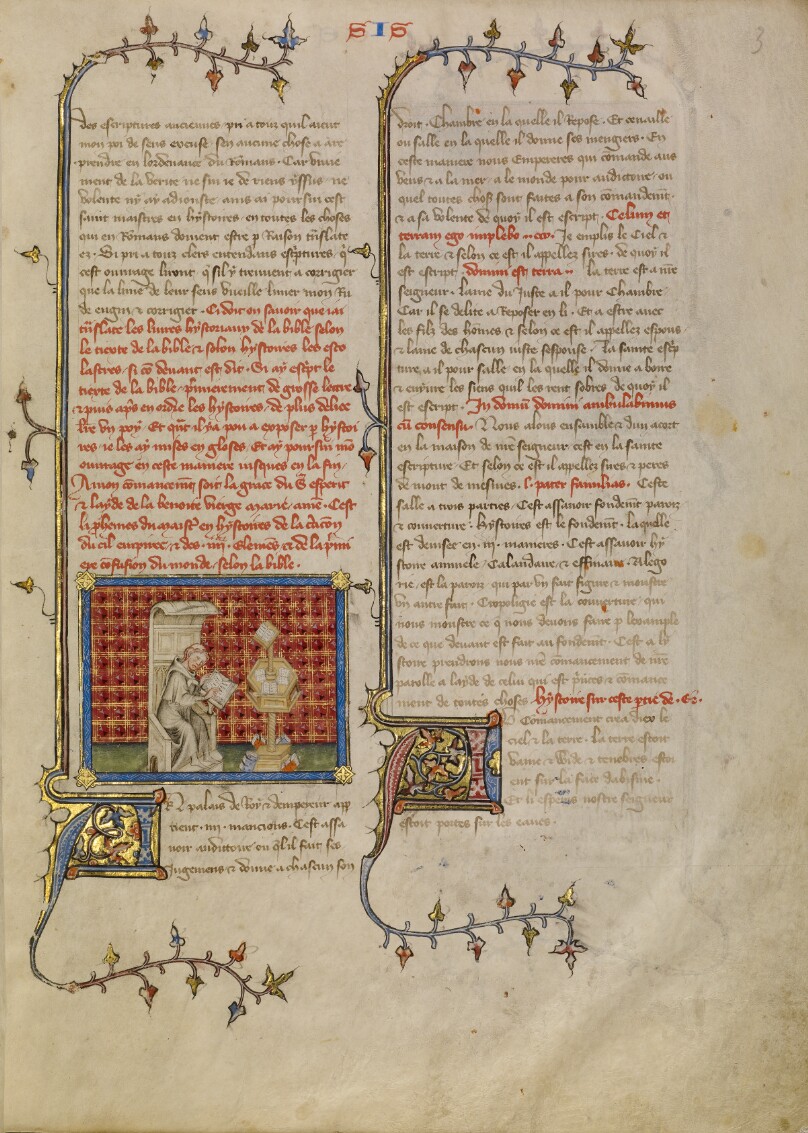 SIS
3
des escriptures anciennes pri a touz quil aient
mon poi de sens excuse sen aucune chose a are
prendre en lordenance du Romans. Car vraie
ment de la verite ne sui ie de riens yssus ne
volente ny ay adiouste ains ai poursui cest
saint maistres en hystoires en toutes les choses
qui en Romans doivent estre p Raison tnslate
ez. Si pri a touz clers entendans escptures q
cest ouvrage liront q sil y treuvent a corrigier
que la lime de leur sens vueille limer mon Ru
de engin et corrigier. Ci doit on savoir que iai
tnslate les livres hystoriaux de la bible selon
le texte de la bible et selon hystoires les esco
lastres, si co devant est dit. Si ay escpt le
texte de la bible pmierement de grosse lettre
et puis aps en ordre les hystoires, de plus deliee
lre un poy. Et qnt il ya poi a exposer p hystoi
res ie les ay mises en gloses. Et ay poursui mo
ouvrage en ceste maniere iusques en la fin.
A mon comancemt soit la grace du S esperit
et layde de la benoite vierge marie amen. Cest
la phemes du maist en hystoires de la cacon
du ciel empiree et des .iiii. Elemens et de la pmi
ere cofusion du monde, selon la bible.
En palais de Roy et dempereur app
tient .iiii. mancions. Cest assa
voir auditoire ou ql il fait ses
Jugemens et donne a chascun son
droit. Chambre en la quelle il Repose. Et cenaille
ou salle en la quelle il donne ses mengiers. En
ceste maniere nous Empereres qui comande aus
vens et a la mer a le monde pour auditoire ou
quel toutes choses sont faites a son comandemt.
et a sa volente de quoy il est escript. Celum et
terram ego implebo. Je emplis le Ciel et
la terre et selon ce est il appellez sires de quoy il
est escript. domini est terra. La terre est a nre
seigneur. Lame du Juste a il pour Chambre.
Car il se delite a Reposer en li. Et a estre avec
les filz des homes et selon ce est il appellez espous
et lame de chascun iuste sespouse. La sainte escp
ture a il pour salle en la quelle il donne a boire
et enyvre les siens quil les rent sobres de quoy il
est escript. In domu domini ambulabimus
cu consensu. Nous alons ensamble dun acort
en la maison de nre seigneur cest en la sainte
escripture. Et selon ce est il appellez sires et peres
de mesnies. pater familias. Ceste
salle a trois parties. Cest assavoir fondemt paroiz
et couverture. Hystoires est le fondemt. laquelle
est devisee en .iii. manieres. Cest assavoir hy
stoire annuele Calandaire et Allego
rie est la paroiz qui par un fait figure et monstre
un autre fait. Tropoligie est la couverture qui
nous monstre ce q nous devons faire p lexample
de ce que devant est fait au fondemt. Cest a hy
stoire prendrons nous nre comancement de nre
parolle a layde de celui qui est pnces et comance
ment de toutes choses. Hystoire sur ceste ptie de
Comancement crea diex le
ciel et la terre. La terre estoit
vaine et vuide et tenebres estoi
ent sur la face dabisme.
Et li esperis nostre seigneur
estoit portes sur les eaues.